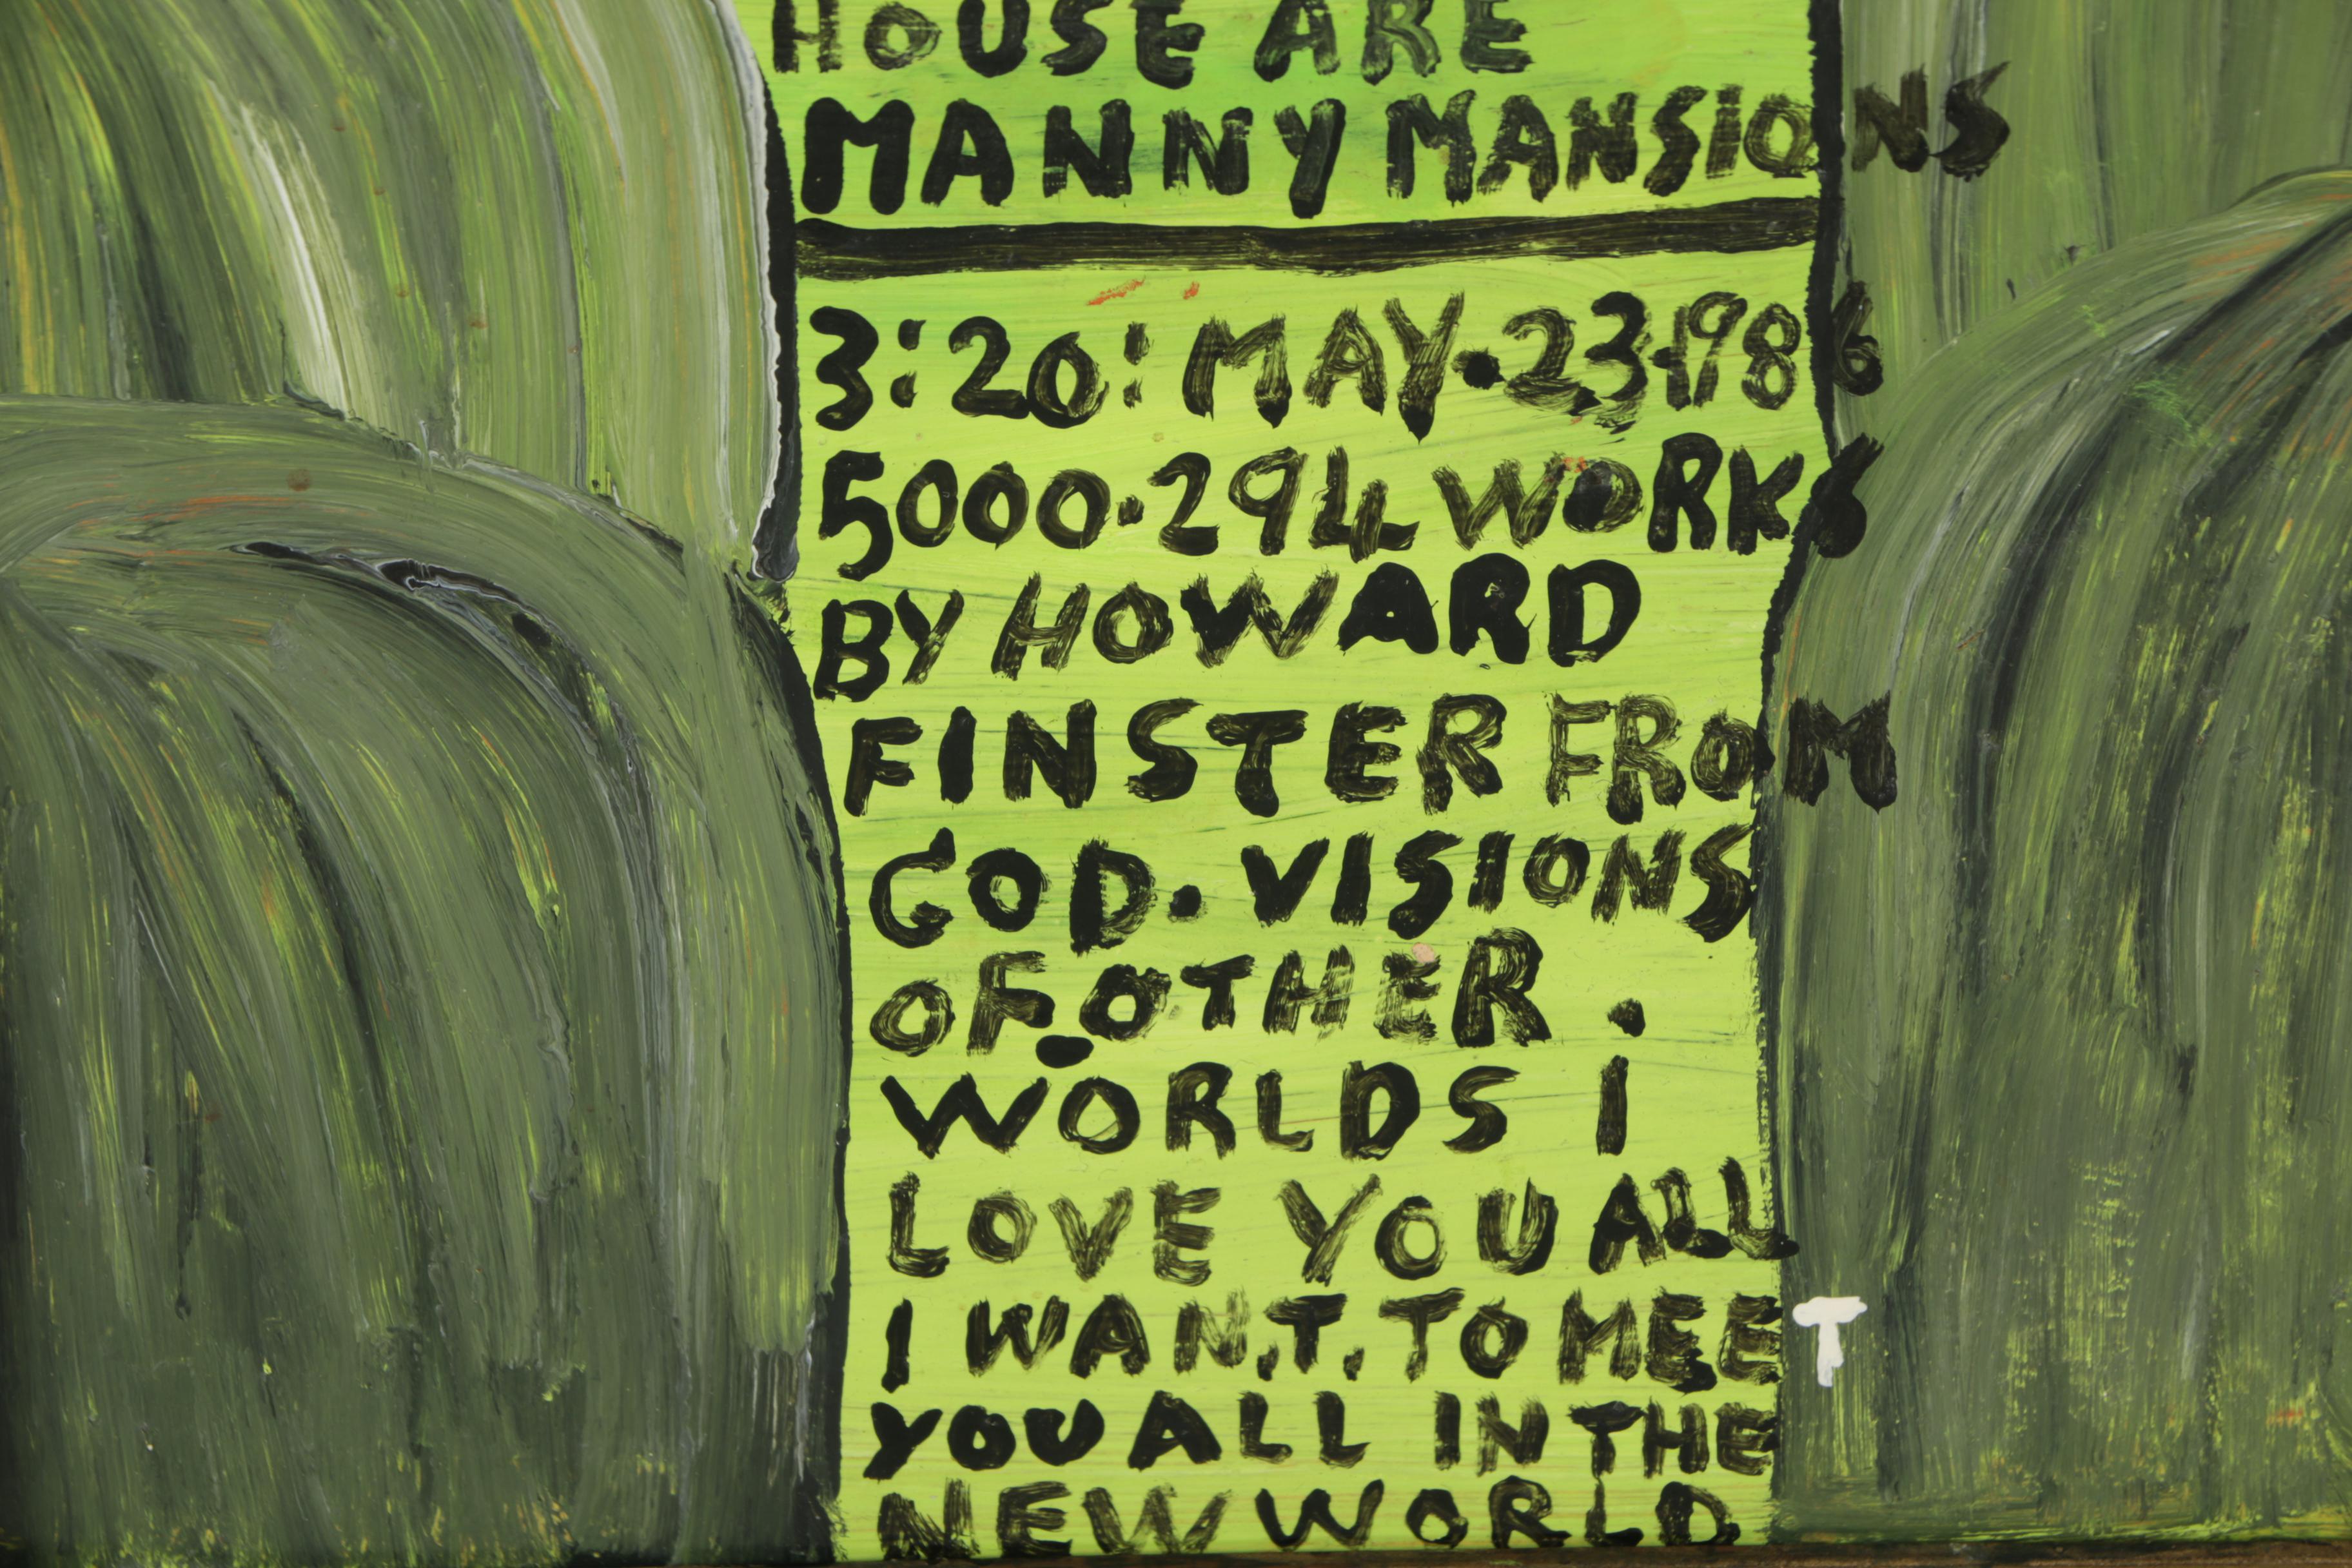 HOUSE ARE
MANNY MANSIONS
3:20: MAY.23-1986
5000.294 WORKS
BY HOWARD
FINSTER FROM
GOD. VISIONS
OF.OTHER .
WORLDS I
LOVE YOU ALL
I WAN.T. TO MEET
YOU ALL IN THE
NEW WORLD